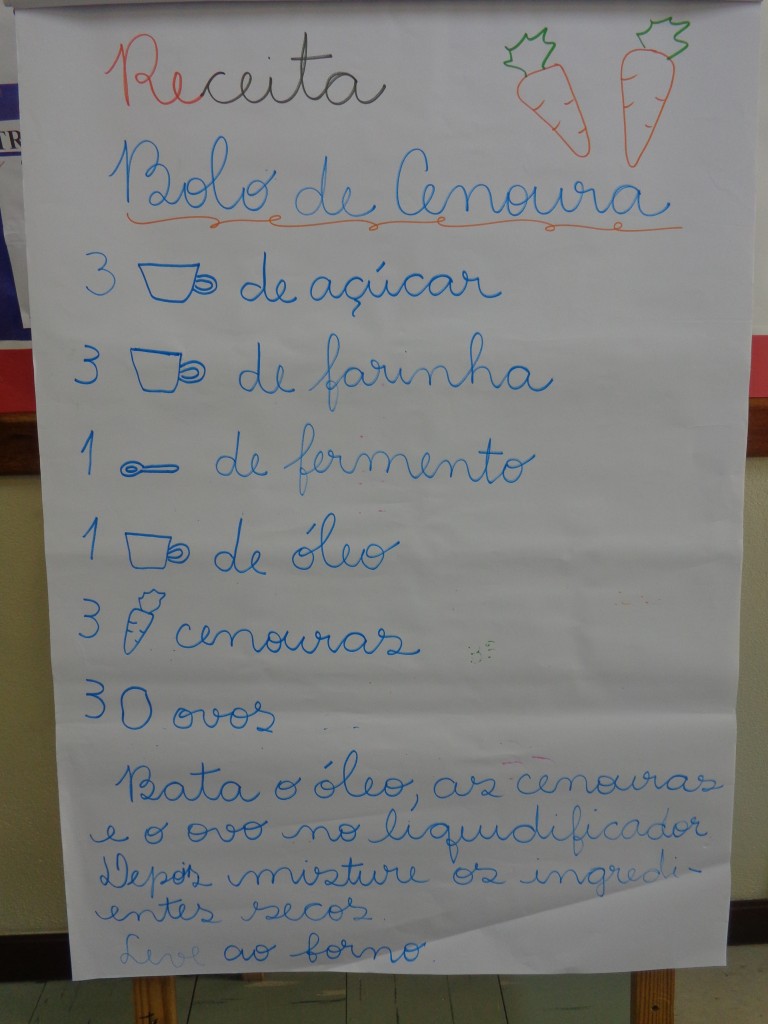 Receita
Bolo de Cenoura
TR
3 de açúcar
3 de farinha
1 de fermento
1 de óleo
3 cenouras
3 ovos
Bata o óleo, as cenouras
e o ovo no liquidificador
Depois misture os ingredi-
entes secos.
Leve ao forno.